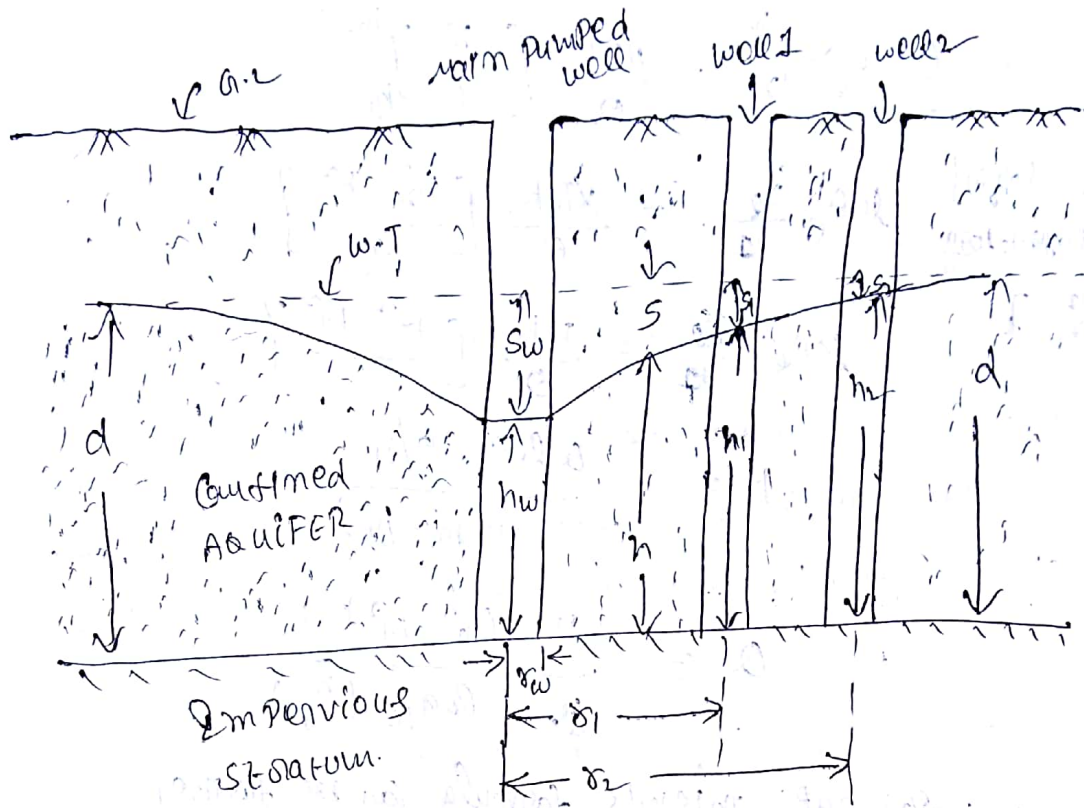 G.L
Main Pumped
well
well 1
well 2
W.T
Sw
S
S1
S2
d
Confined
AQUIFER
hw
h
h1
h2
d
rw
r1
r2
Impervious
stratum.